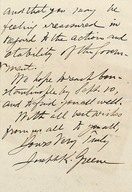 and that you may be
feeling reassured in
regard to the action and
stability of this Govern-
ment.
We hope to reach Con-
stantinople by Sept. 10,
and to find you all well.
With all best wishes
from us all to you all,
Yours very truly,
Joseph K. Greene